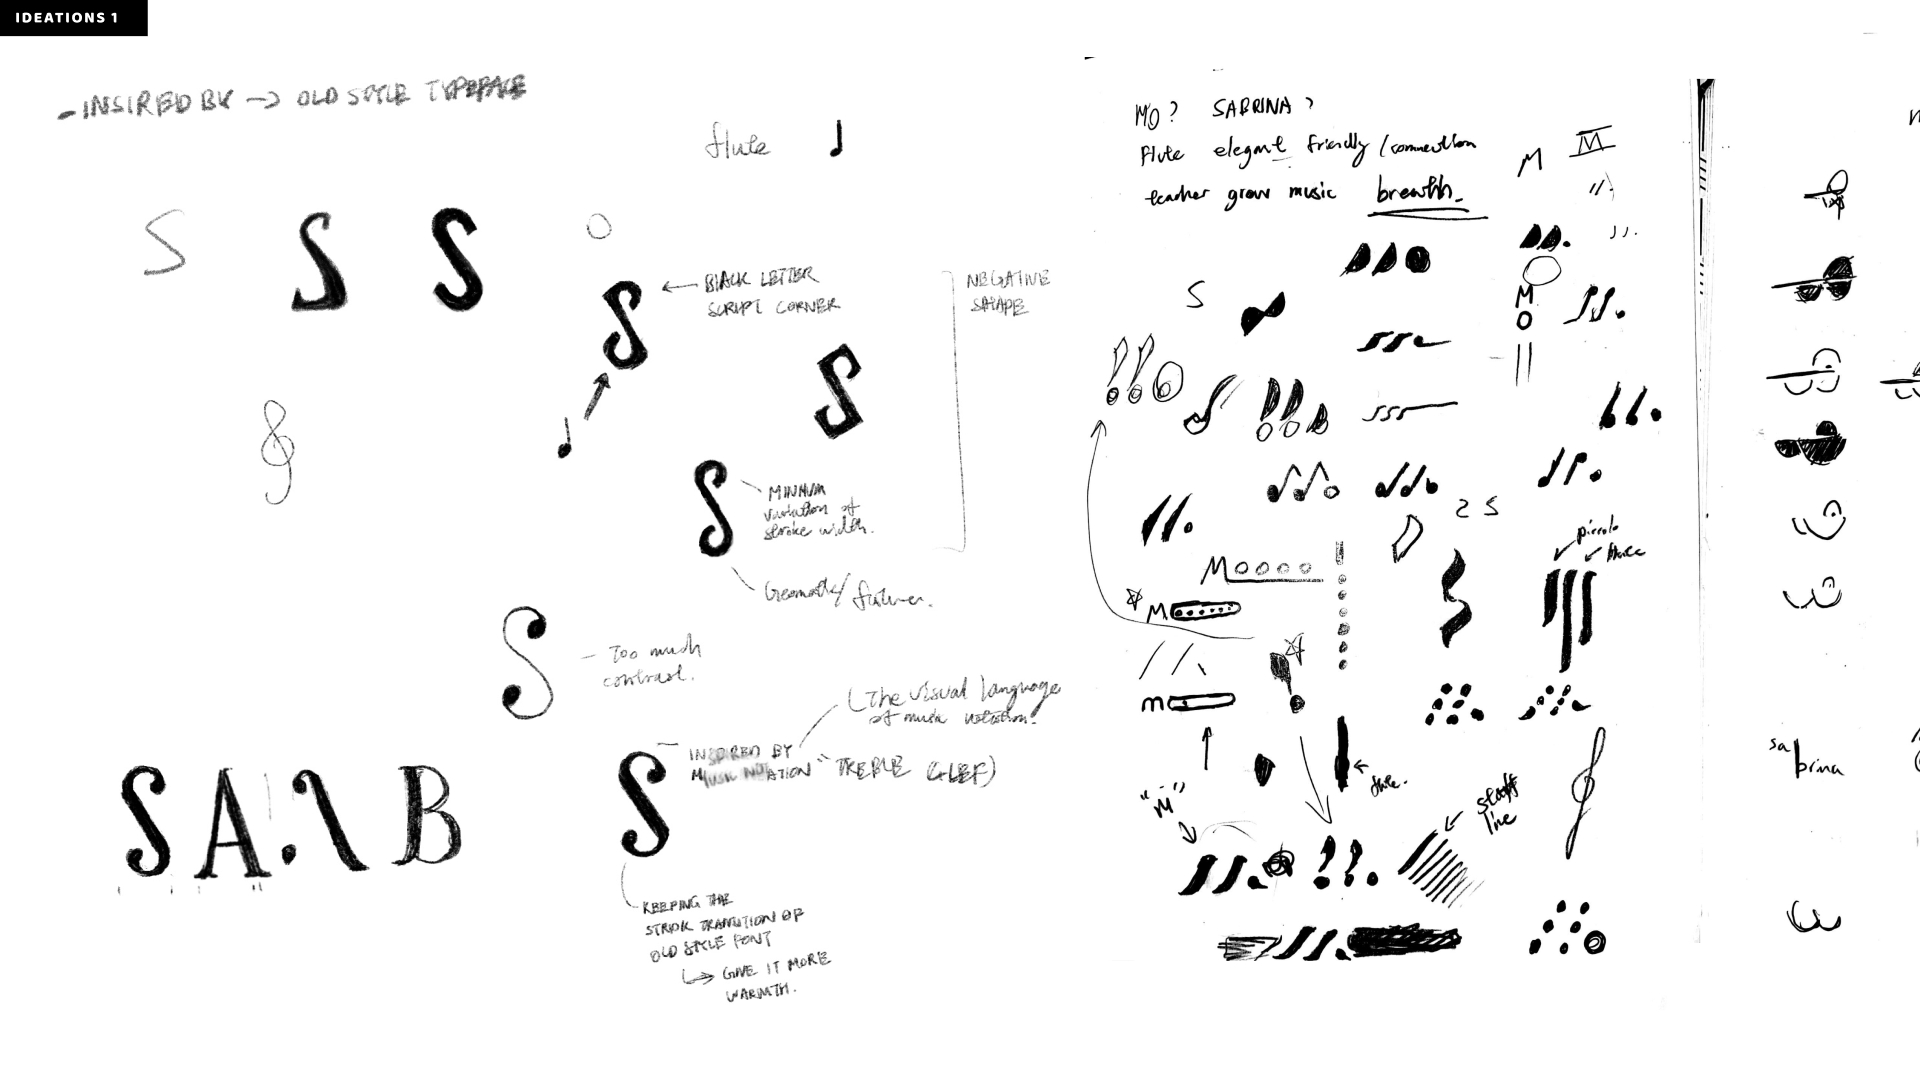 IDEATIONS 1
- INSIRED BY → OLD STYLE TYPEFACE
flute
S S S
S
BLACK LETTER
SCRIPT CORNER
NEGATIVE
SHAPE
S
S
MINIMUM
variation of
stroke width.
Geometric/
S
- Too much
contrast.
(The visual language
of music notation.
INSPIRED BY
MUSIC NOTATION "TREBLE CLEF)
S
S A B
KEEPING THE
STROK TRANSITION OF
OLD STYLE FONT
GIVE IT MORE
WARMTH.
MO? SABRINA?
Flute elegant friendly / connection
teacher grow music breath.
M M
S
M
O
2 S
piccolo
flute
M
M
m
"M"
flute.
staff
line
sa
brina